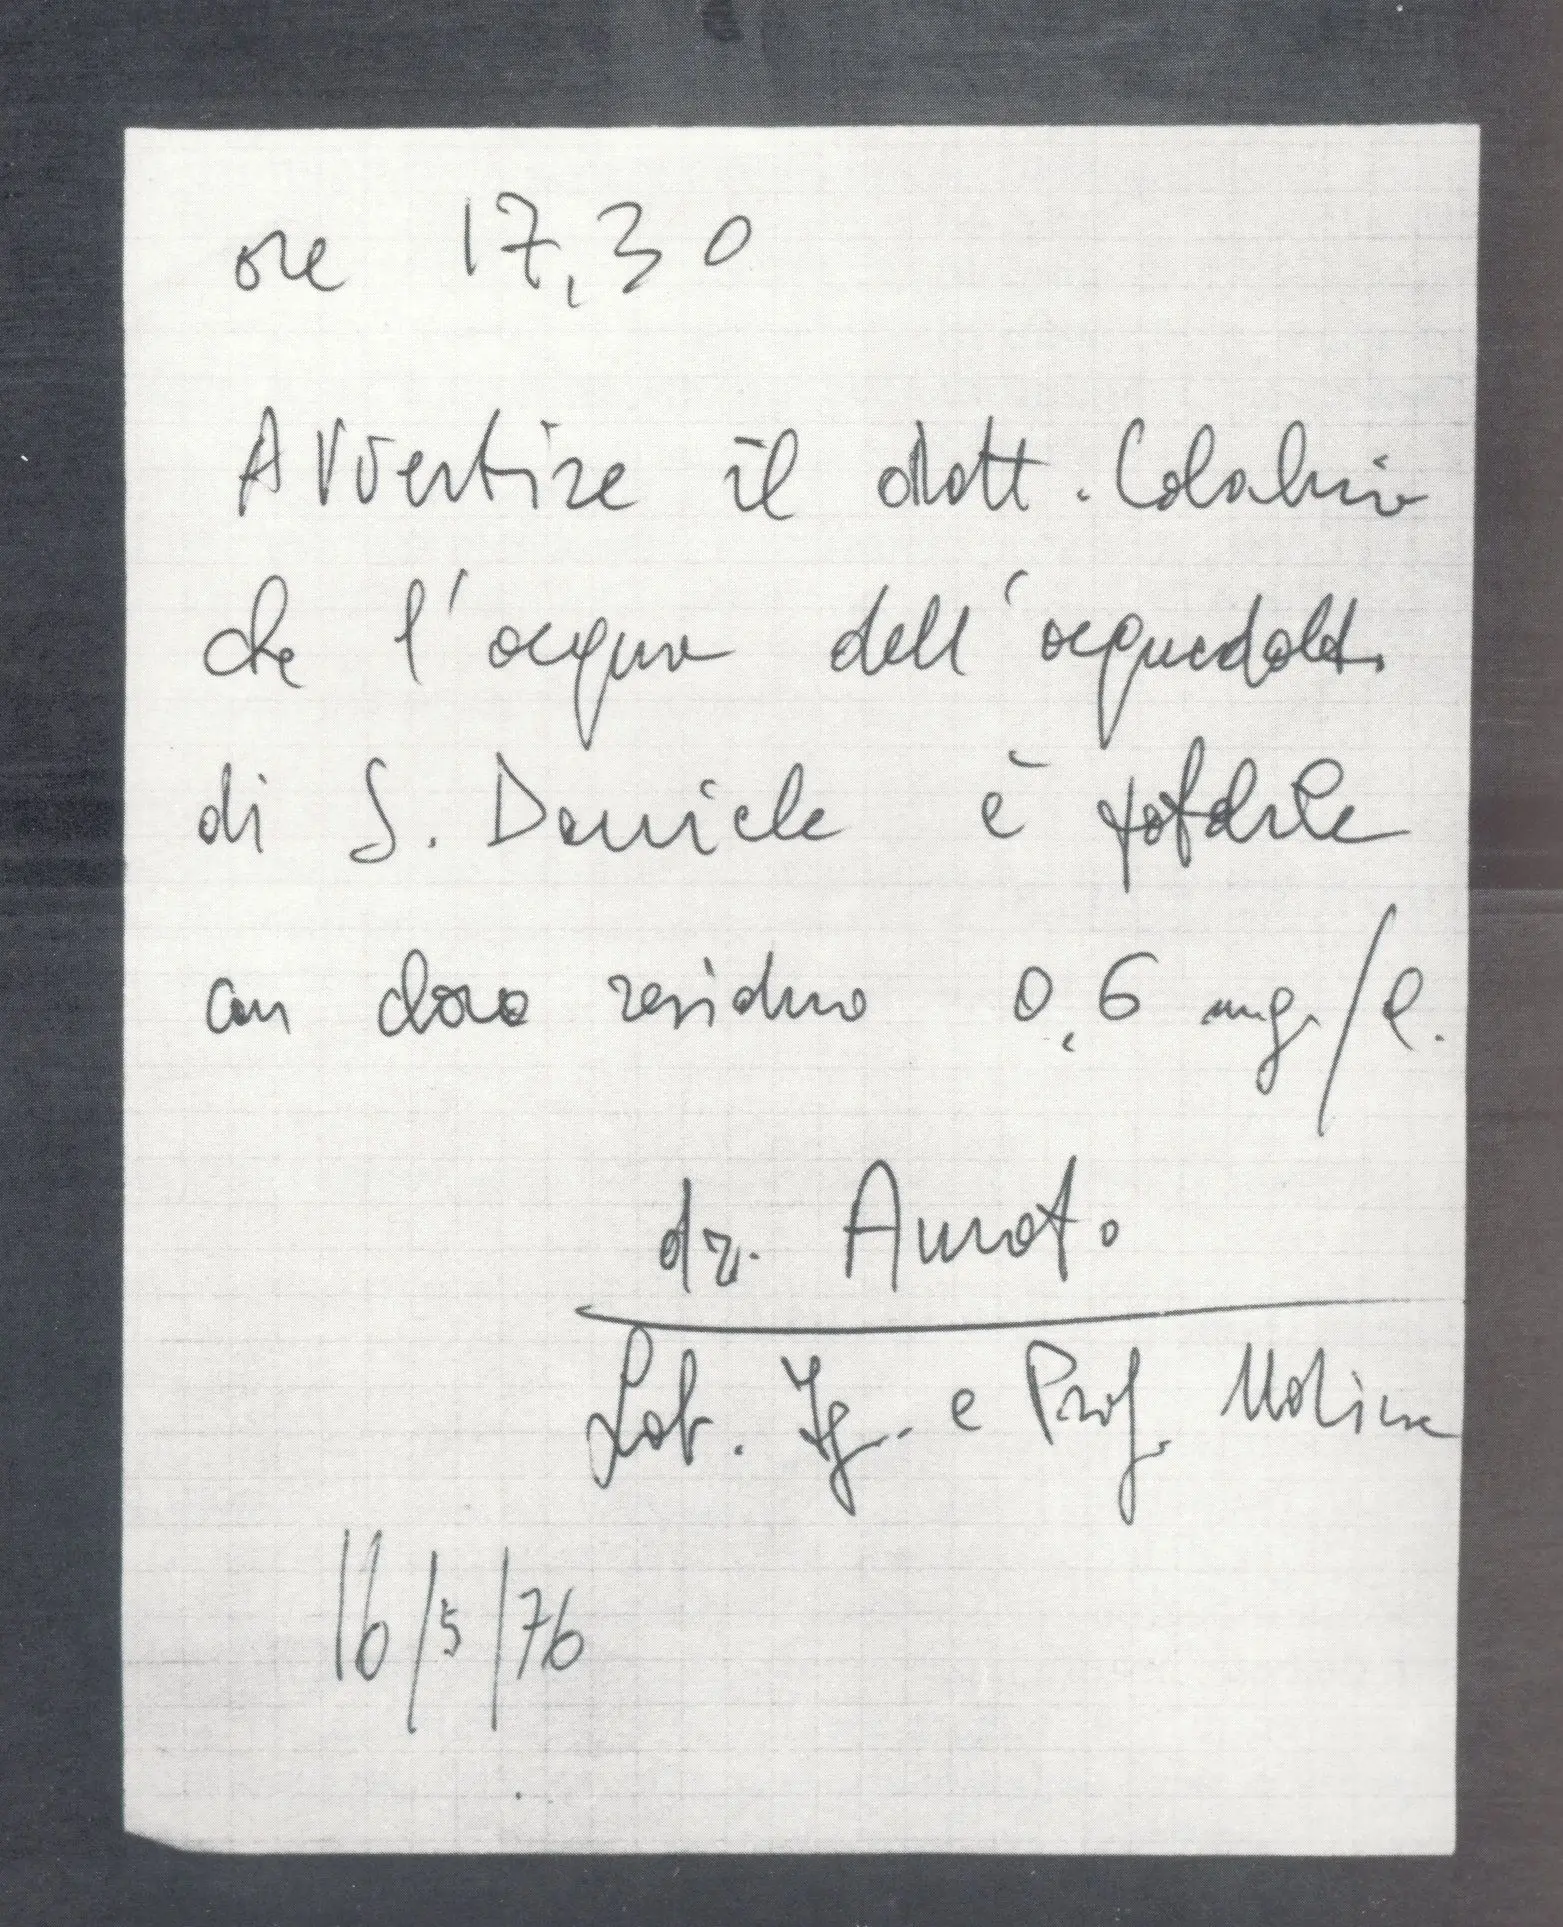 ore 17,30
Avvertire il dott. Colabrio
che l'acqua dell'acquedott.
di S. Daniele è potabile
con cloro residuo 0,6 mg/l.
dr. Amato
Lab. Ig. e Prof. Udine
16/5/76